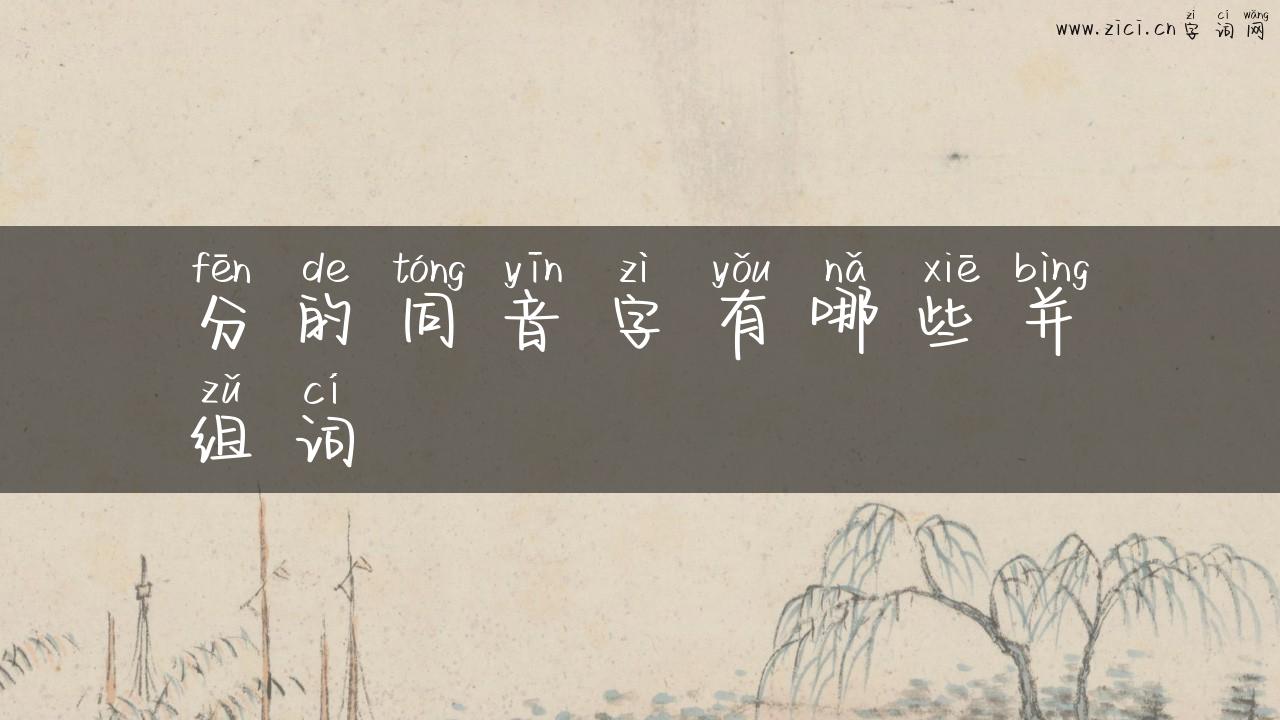 zì cí wǎng
www.zici.cn 字 词 网
fēn de tóng yīn zì yǒu nǎ xiē bìng
分 的 同 音 字 有 哪 些 并
zǔ cí
组 词